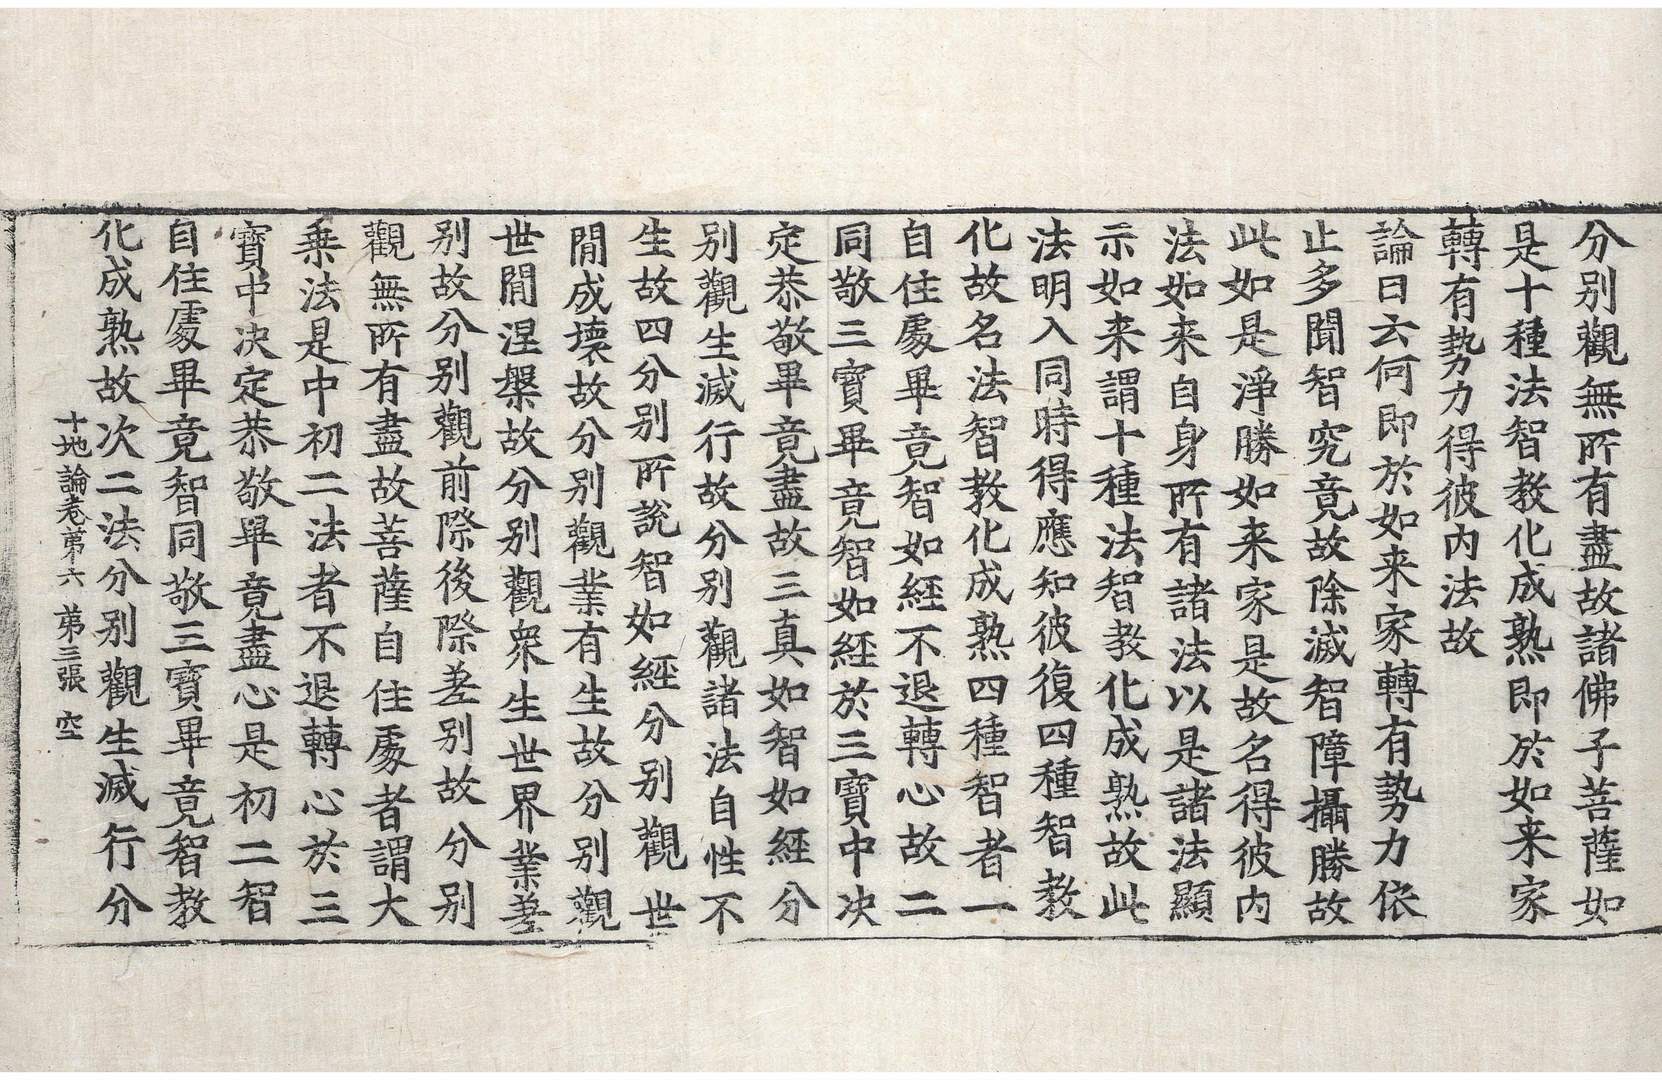 分别觀無所有盡故諸佛子菩薩如
是十種法智教化成熟即於如来家
轉有勢力得彼内法故
論曰云何即於如来家轉有勢力依
止多聞智究竟故除滅智障攝勝故
此如是淨勝如来家是故名得彼内
法如来自身所有諸法以是諸法顯
示如来謂十種法智教化成熟故此
法明入同時得應知彼復四種智教
化故名法智教化成熟四種智者一
自住處畢竟智如經不退轉心故二
同敬三寶畢竟智如經於三寶中决
定恭敬畢竟盡故三真如智如經分
别觀生滅行故分别觀諸法自性不
生故四分别所說智如經分别觀世
間成壞故分别觀業有生故分别觀
世間涅槃故分别觀衆生世界業差
别故分别觀前際後際差别故分别
觀無所有盡故菩薩自住處者謂大
乗法是中初二法者不退轉心於三
寶中决定恭敬畢竟盡心是初二智
自住處畢竟智同敬三寶畢竟智教
化成熟故次二法分别觀生滅行分
十地論卷第六 第三張 空